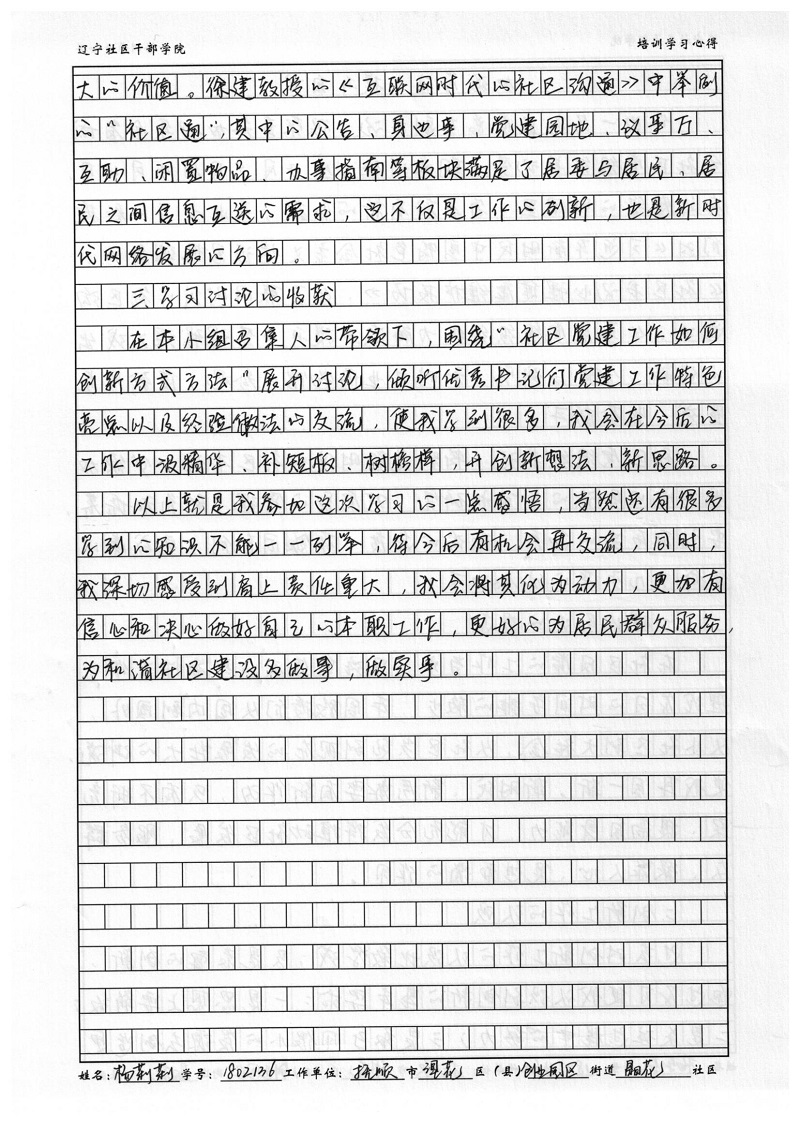 辽宁社区干部学院 培训学习心得
大的价值。徐建教授的《互联网时代的社区沟通》中举例
的“社区通”，其中的公告、身边事、党建园地、议事厅、
互助、闲置物品、办事指南等板块满足了居委与居民、居
民之间信息互送的需求，这不仅是工作的创新，也是新时
代网络发展的方向。
三、学习讨论的收获
在本小组召集人的带领下，围绕“社区党建工作如何
创新方式方法”展开讨论，倾听优秀书记们党建工作特色
亮点以及经验做法的交流，使我学到很多，我会在今后的
工作中汲精华、补短板、树榜样，开创新想法、新思路。
以上就是我参加这次学习的一点感悟，当然还有很多
学到的知识不能一一列举，待今后有机会再交流，同时，
我深切感受到肩上责任重大，我会将其化为动力，更加有
信心和决心做好自己的本职工作，更好的为居民群众服务，
为和谐社区建设多做事，做实事。
姓名：杨莉莉 学号：1802136 工作单位：抚顺 市 区（县） 街道 社区